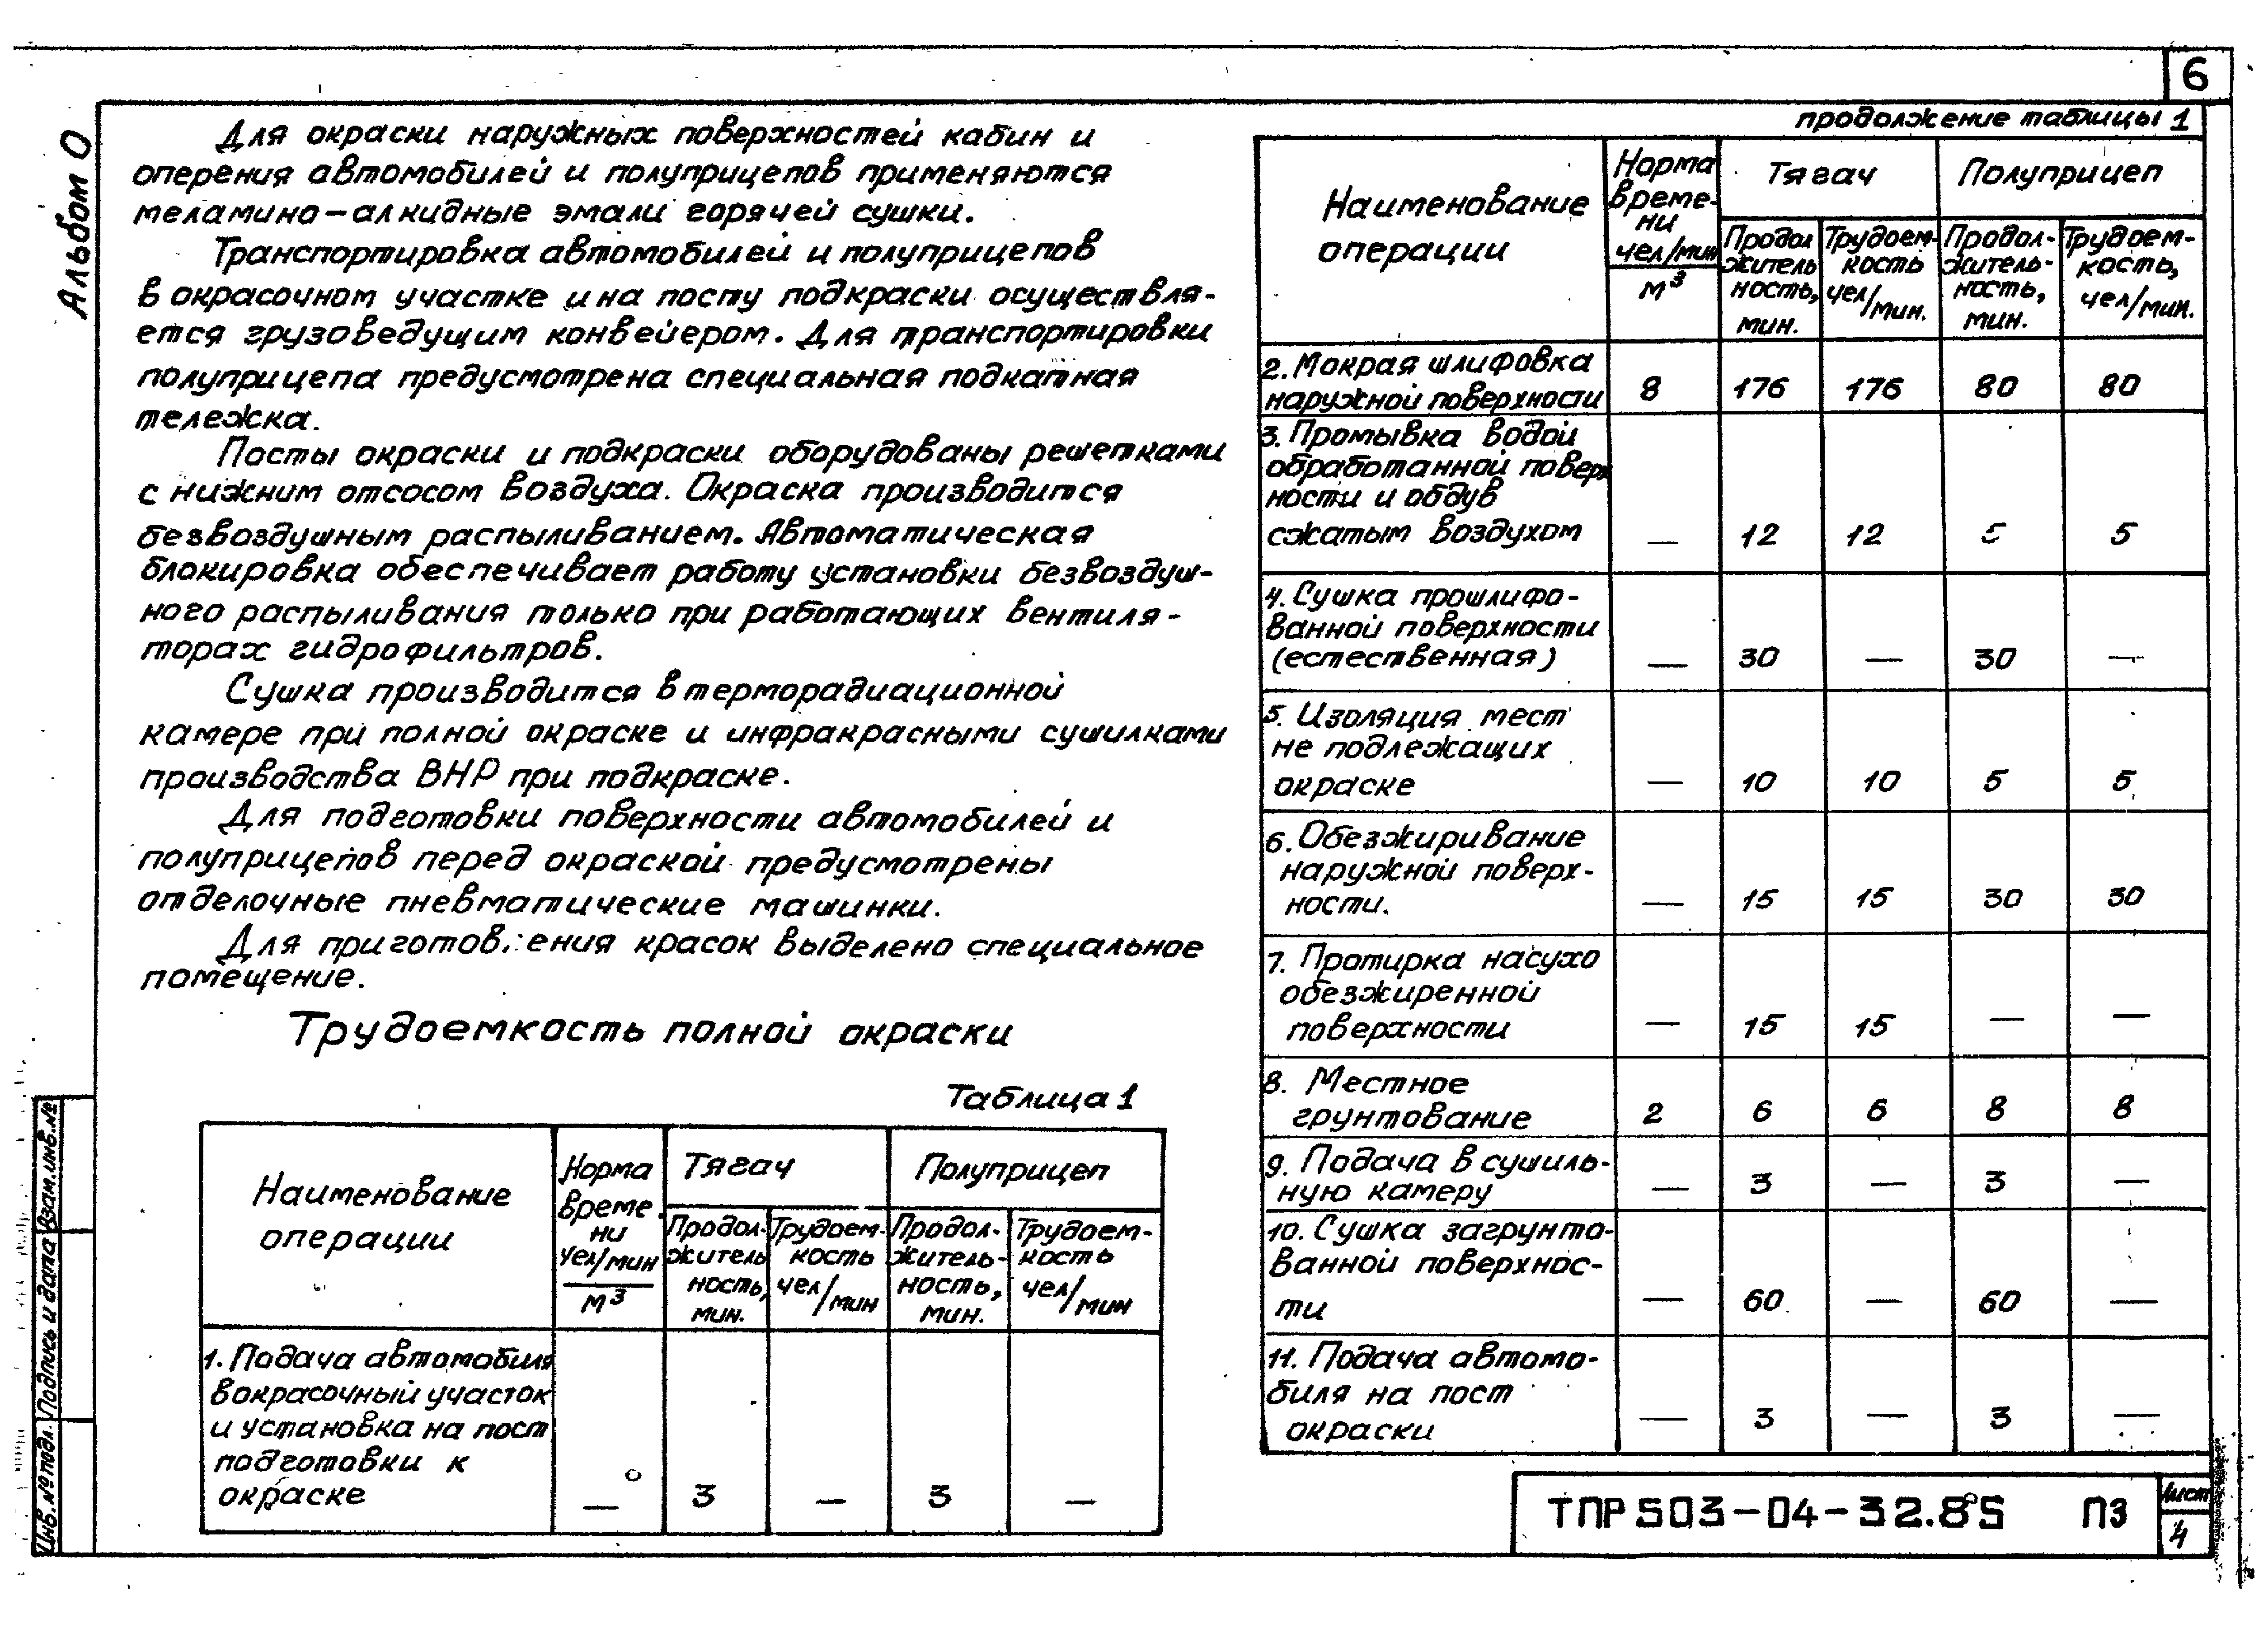 6
Альбом 0
Для окраски наружных поверхностей кабин и
оперения автомобилей и полуприцепов применяются
меламино-алкидные эмали горячей сушки.
Транспортировка автомобилей и полуприцепов
в окрасочном участке и на посту подкраски осуществля-
ется грузоведущим конвейером. Для транспортировки
полуприцепа предусмотрена специальная подкатная
тележка.
Посты окраски и подкраски оборудованы решетками
с нижним отсосом воздуха. Окраска производится
безвоздушным распыливанием. Автоматическая
блокировка обеспечивает работу установки безвоздуш-
ного распыливания только при работающих вентиля-
торах гидрофильтров.
Сушка производится в терморадиационной
камере при полной окраске и инфракрасными сушилками
производства ВНР при подкраске.
Для подготовки поверхности автомобилей и
полуприцепов перед окраской предусмотрены
отделочные пневматические машинки.
Для приготовления красок выделено специальное
помещение.
Трудоемкость полной окраски
Таблица 1
Наименование операции | Норма време-ни чел/мин м3 | Тягач | Полуприцеп
Продол-житель ность, мин. | Трудоем-кость чел/мин | Продол-житель-ность, мин. | Трудоем-кость чел/мин
1. Подача автомобиля
в окрасочный участок
и установка на пост
подготовки к
окраске — 3 — 3 —
продолжение таблицы 1
Наименование операции | Норма време-ни чел/мин м3 | Тягач | Полуприцеп
Продол житель ность, мин. | Трудоем-кость чел/мин. | Продол-житель-ность, мин. | Трудоем-кость, чел/мин.
2. Мокрая шлифовка
наружной поверхности 8 176 176 80 80
3. Промывка водой
обработанной поверх
ности и обдув
сжатым воздухом — 12 12 5 5
4. Сушка прошлифо-
ванной поверхности
(естественная) — 30 — 30 —
5. Изоляция мест
не подлежащих
окраске — 10 10 5 5
6. Обезжиривание
наружной поверх-
ности. — 15 15 30 30
7. Протирка насухо
обезжиренной
поверхности — 15 15 — —
8. Местное
грунтование 2 6 6 8 8
9. Подача в сушиль-
ную камеру — 3 — 3 —
10. Сушка загрунто-
ванной поверхнос-
ти — 60 — 60 —
11. Подача автомо-
биля на пост
окраски — 3 — 3 —
Инв.№ подл. Подпись и дата Взам.инв.№
ТПР 503-04-32.85 ПЗ
Лист
4